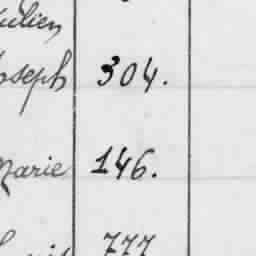 Julien
Joseph 304.
Marie 146.
777